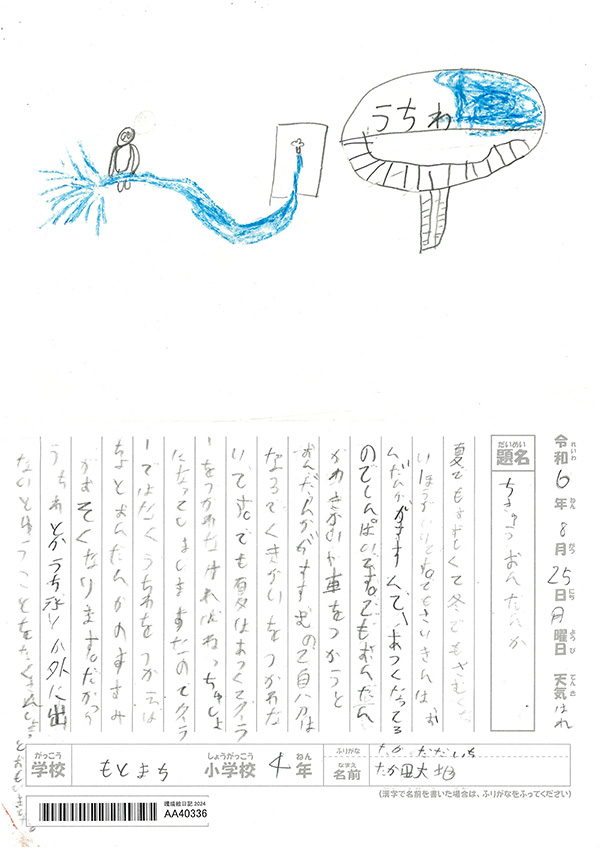 うちわ
令和6年8月25日月曜日 天気はれ
れいわ ねん がつ にち ようび てんき
だいめい
題名
ちきゅうおんだんか
夏でもすずしくて冬でもさむくな
いほうがいいけど。でもさいきんは、お
んだんかがすすんで、あつくなってる
のでしんぱいです。でもおんだん
かのきかいや車をつかうと
おんだんかがすすむので自分は
なるべくきかいをつかわな
いです。でも夏はあつくてクーラ
ーをつかわなければねっちゅうしょ
になってしまいますなのでクーラ
ーではなくうちわをつかえば
ちょとおんだんかのすすみ
がおそくなります。だから
うちわとかうちみずとか外に出
ないとゆうことをたくさんし
がっこう
学校
もとまち
しょうがっこう
小学校
4
ねん
年
ふりがな
たかだだいち
なまえ
名前
たか田大地
(漢字で名前を書いた場合は、ふりがなをふってください)
環境絵日記2024
AA40336